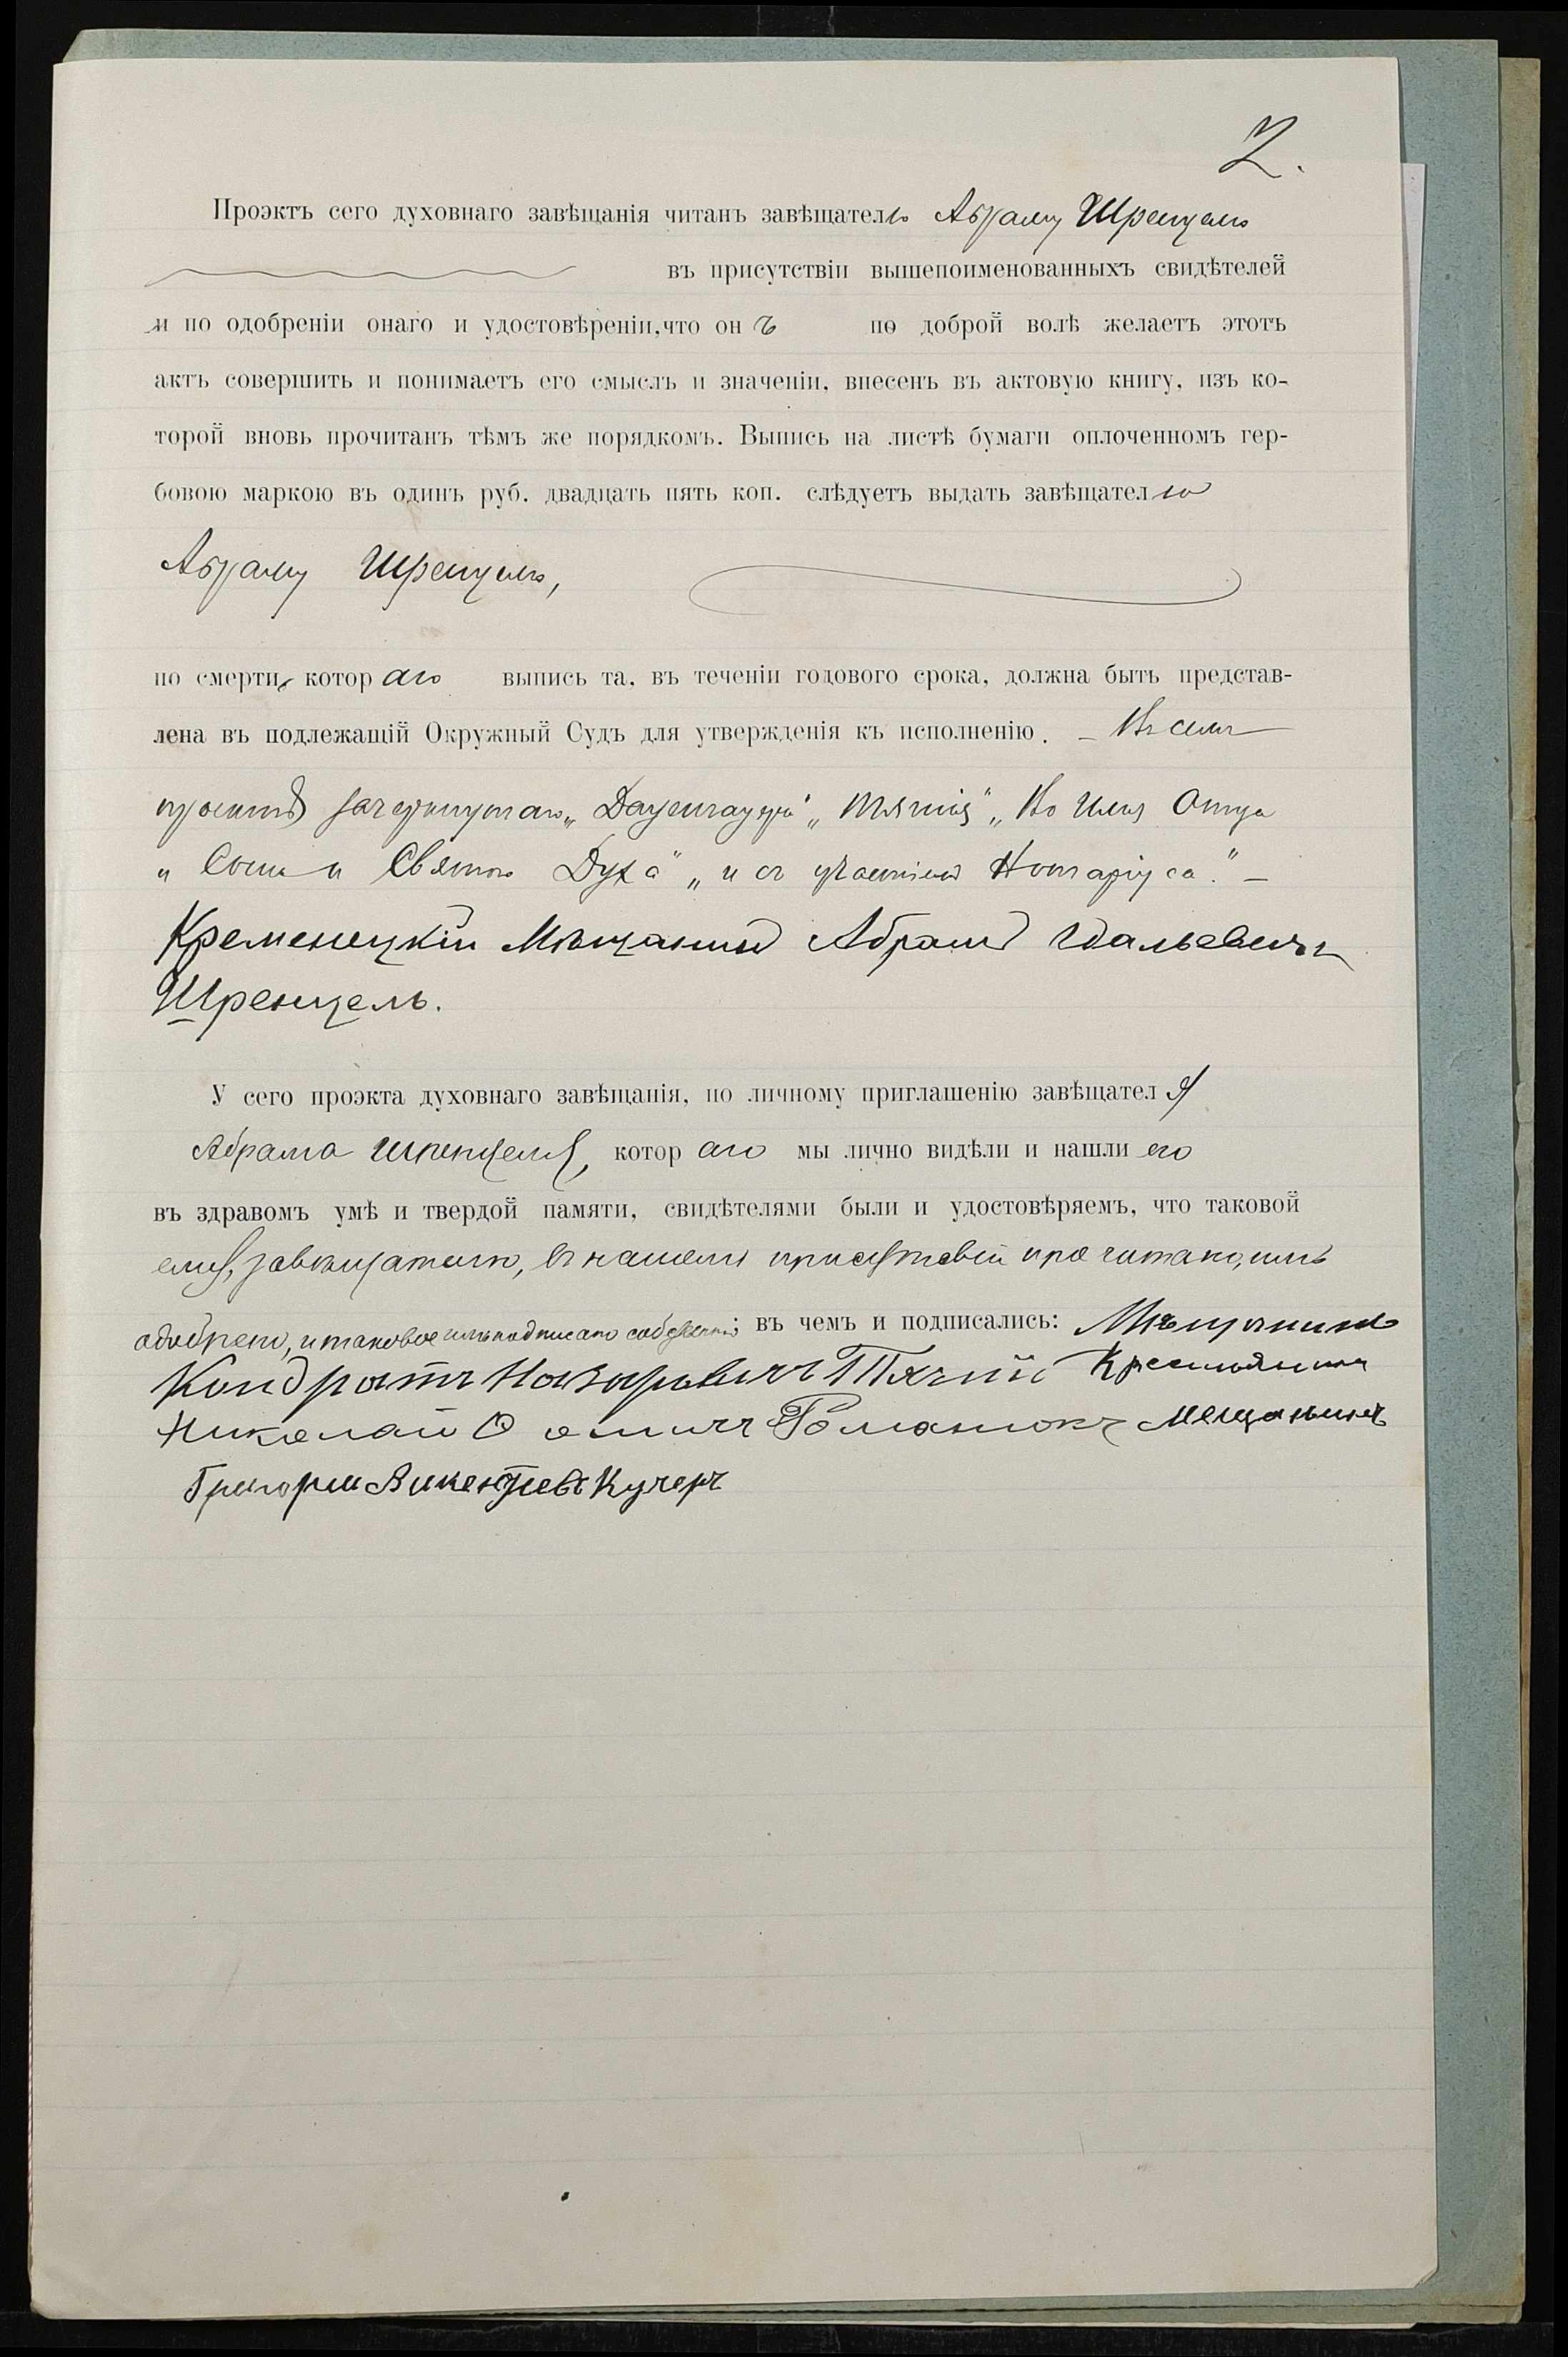 2.
Проэктъ сего духовнаго завѣщанія читанъ завѣщателю Абраму Шренцелю
въ присутствіи вышепоименованныхъ свидѣтелей
и по одобреніи онаго и удостовѣреніи, что онъ по доброй волѣ желаетъ этотъ
актъ совершить и понимаетъ его смыслъ и значеніи, внесенъ въ актовую книгу, изъ ко-
торой вновь прочитанъ тѣмъ же порядкомъ. Выпись на листѣ бумаги оплоченномъ гер-
бовою маркою въ одинъ руб. двадцать пять коп. слѣдуетъ выдать завѣщателю
Абраму Шренцелю,
по смерти, котораго выпись та, въ теченіи годового срока, должна быть представ-
лена въ подлежащій Окружный Судъ для утвержденія къ исполненію. – Въ семъ
проектѣ зачеркнутаго „ „ „Во имя Отца
„Сына и Святого Духа“ „и съ участіемъ Нотаріуса“. –
Кременецкій Мѣщанинъ Абрамъ Гдальевичъ
Шренцель.
У сего проэкта духовнаго завѣщанія, по личному приглашенію завѣщателя
Абрама Шренцеля, котораго мы лично видѣли и нашли его
въ здравомъ умѣ и твердой памяти, свидѣтелями были и удостовѣряемъ, что таковой
ему, завѣщателю, въ нашемъ присутствіи прочитано, имъ
одобрено, и таковое имъ подписано собственно; въ чемъ и подписались: Мѣщанинъ
Кондратъ Назарьевичъ Крестьянинъ
Николай Романюкъ Мещанинъ
Григорий Викентьевъ Кучеръ